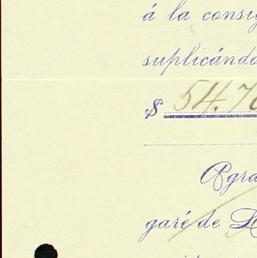 á la consig
suplicándo
$ 54.70
Agra
garé de L